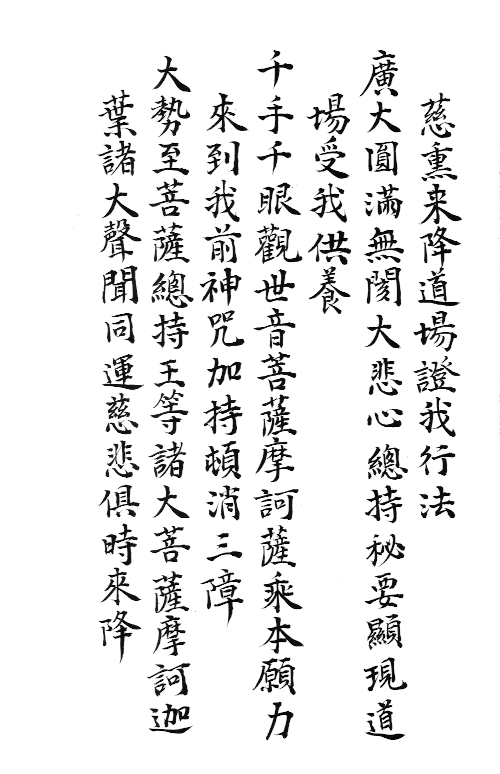 慈熏来降道場證我行法
廣大圓滿無閡大悲心總持秘要顯現道
場受我供養
千手千眼觀世音菩薩摩訶薩乘本願力
來到我前神咒加持頓消三障
大勢至菩薩總持王等諸大菩薩摩訶迦
葉諸大聲聞同運慈悲俱時來降